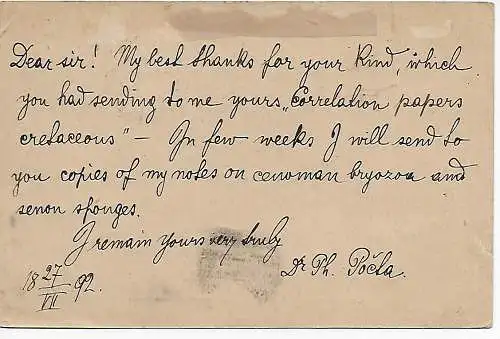 Dear sir! My best thanks for your kind, which
you had sending to me yours „Correlation papers
cretaceous" — In few weeks I will send to
you copies of my notes on cenoman bryozoa and
senon sponges.
I remain yours very truly
Dr Ph. Počta.
18 27/VII 92.